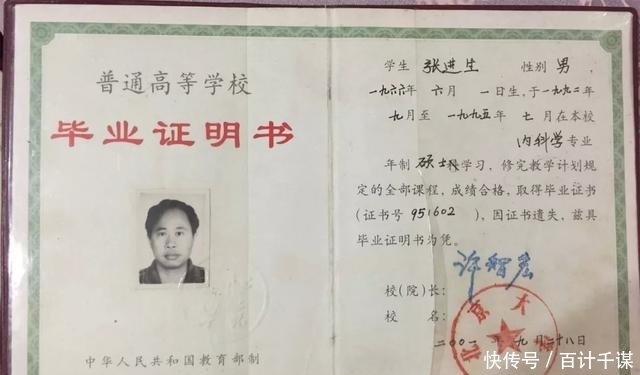 普通高等学校
毕业证明书
中华人民共和国教育部制
学生 张进生 性别 男
一九六六年 六月 一日生,于一九九二年
九月至 一九九五年 七月在本校
内科学专业
年制 硕士科学习,修完教学计划规
定的全部课程,成绩合格,取得毕业证书
(证书号 951602),因证书遗失,兹具
毕业证明书为凭。
许智宏
校(院)长:
校 名:
北京大
二〇〇一年九月二十八日
快传号/百计千谋